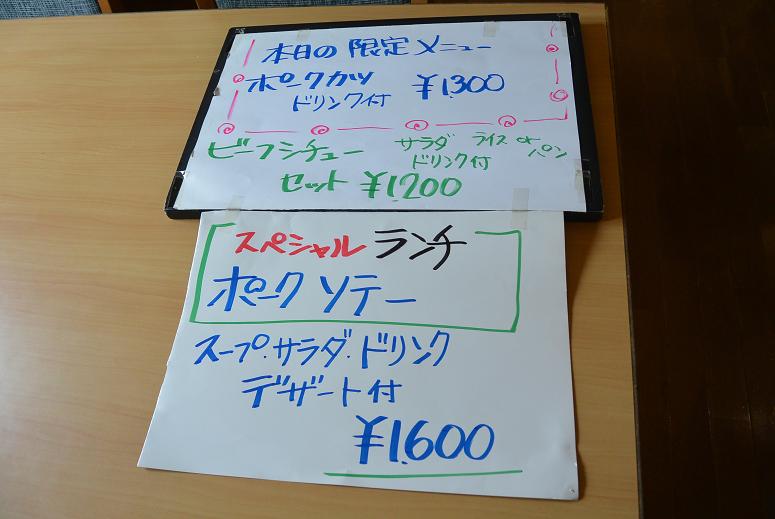 本日の限定メニュー
ポークカツ ¥1300
ドリンク付
ビーフシチュー サラダ ライス or パン
ドリンク付
セット ¥1,200
スペシャル ランチ
ポーク ソテー
スープ・サラダ・ドリンク
デザート付
¥1,600